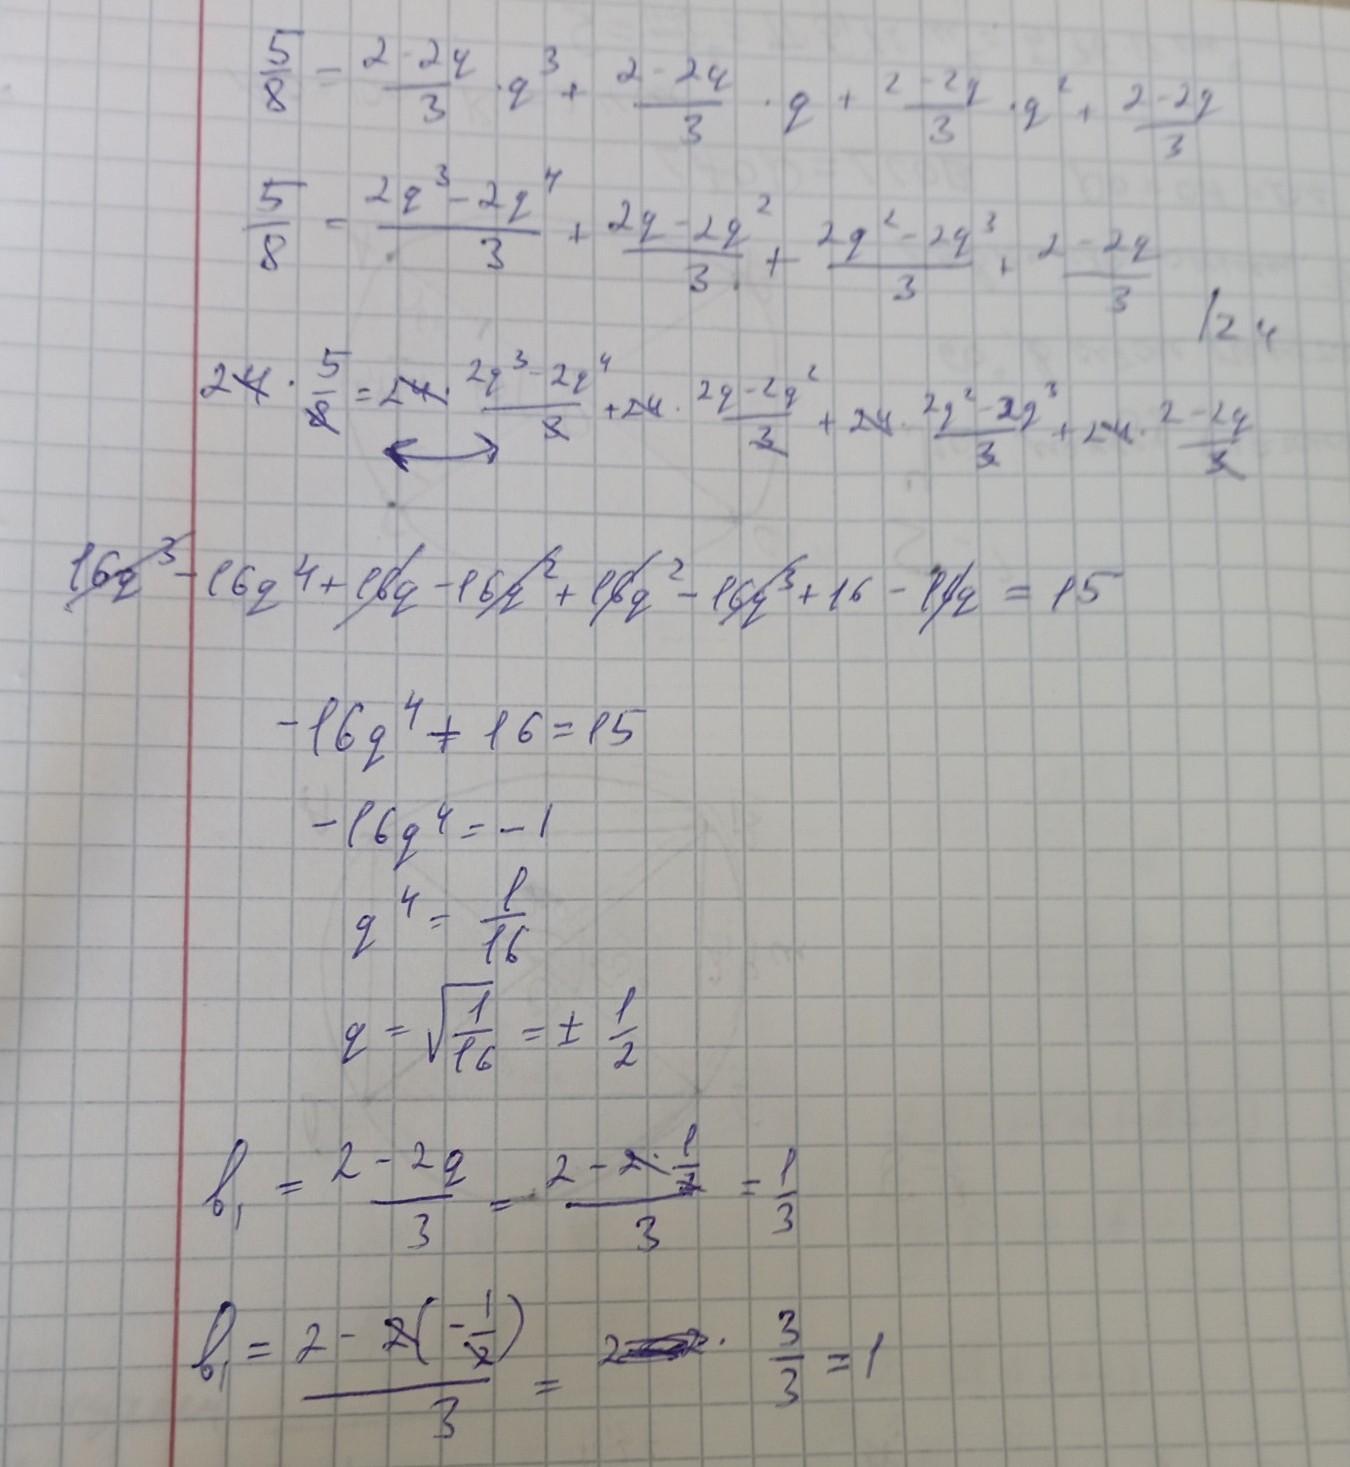 5/8 = (2-2q)/3 · q³ + (2-2q)/3 · q + (2-2q)/3 · q² + (2-2q)/3
5/8 = (2q³-2q⁴)/3 + (2q-2q²)/3 + (2q²-2q³)/3 + (2-2q)/3 /24
24 · 5/8 = 24 · (2q³-2q⁴)/3 + 24 · (2q-2q²)/3 + 24 · (2q²-2q³)/3 + 24 · (2-2q)/3
16q³ - 16q⁴ + 16q - 16q² + 16q² - 16q³ + 16 - 16q = 15
-16q⁴ + 16 = 15
-16q⁴ = -1
q⁴ = 1/16
q = √(1/16) = ± 1/2
b₁ = (2-2q)/3 = (2-2·1/2)/3 = 1/3
b₁ = (2-2(-1/2))/3 = 2 · 3/3 = 1